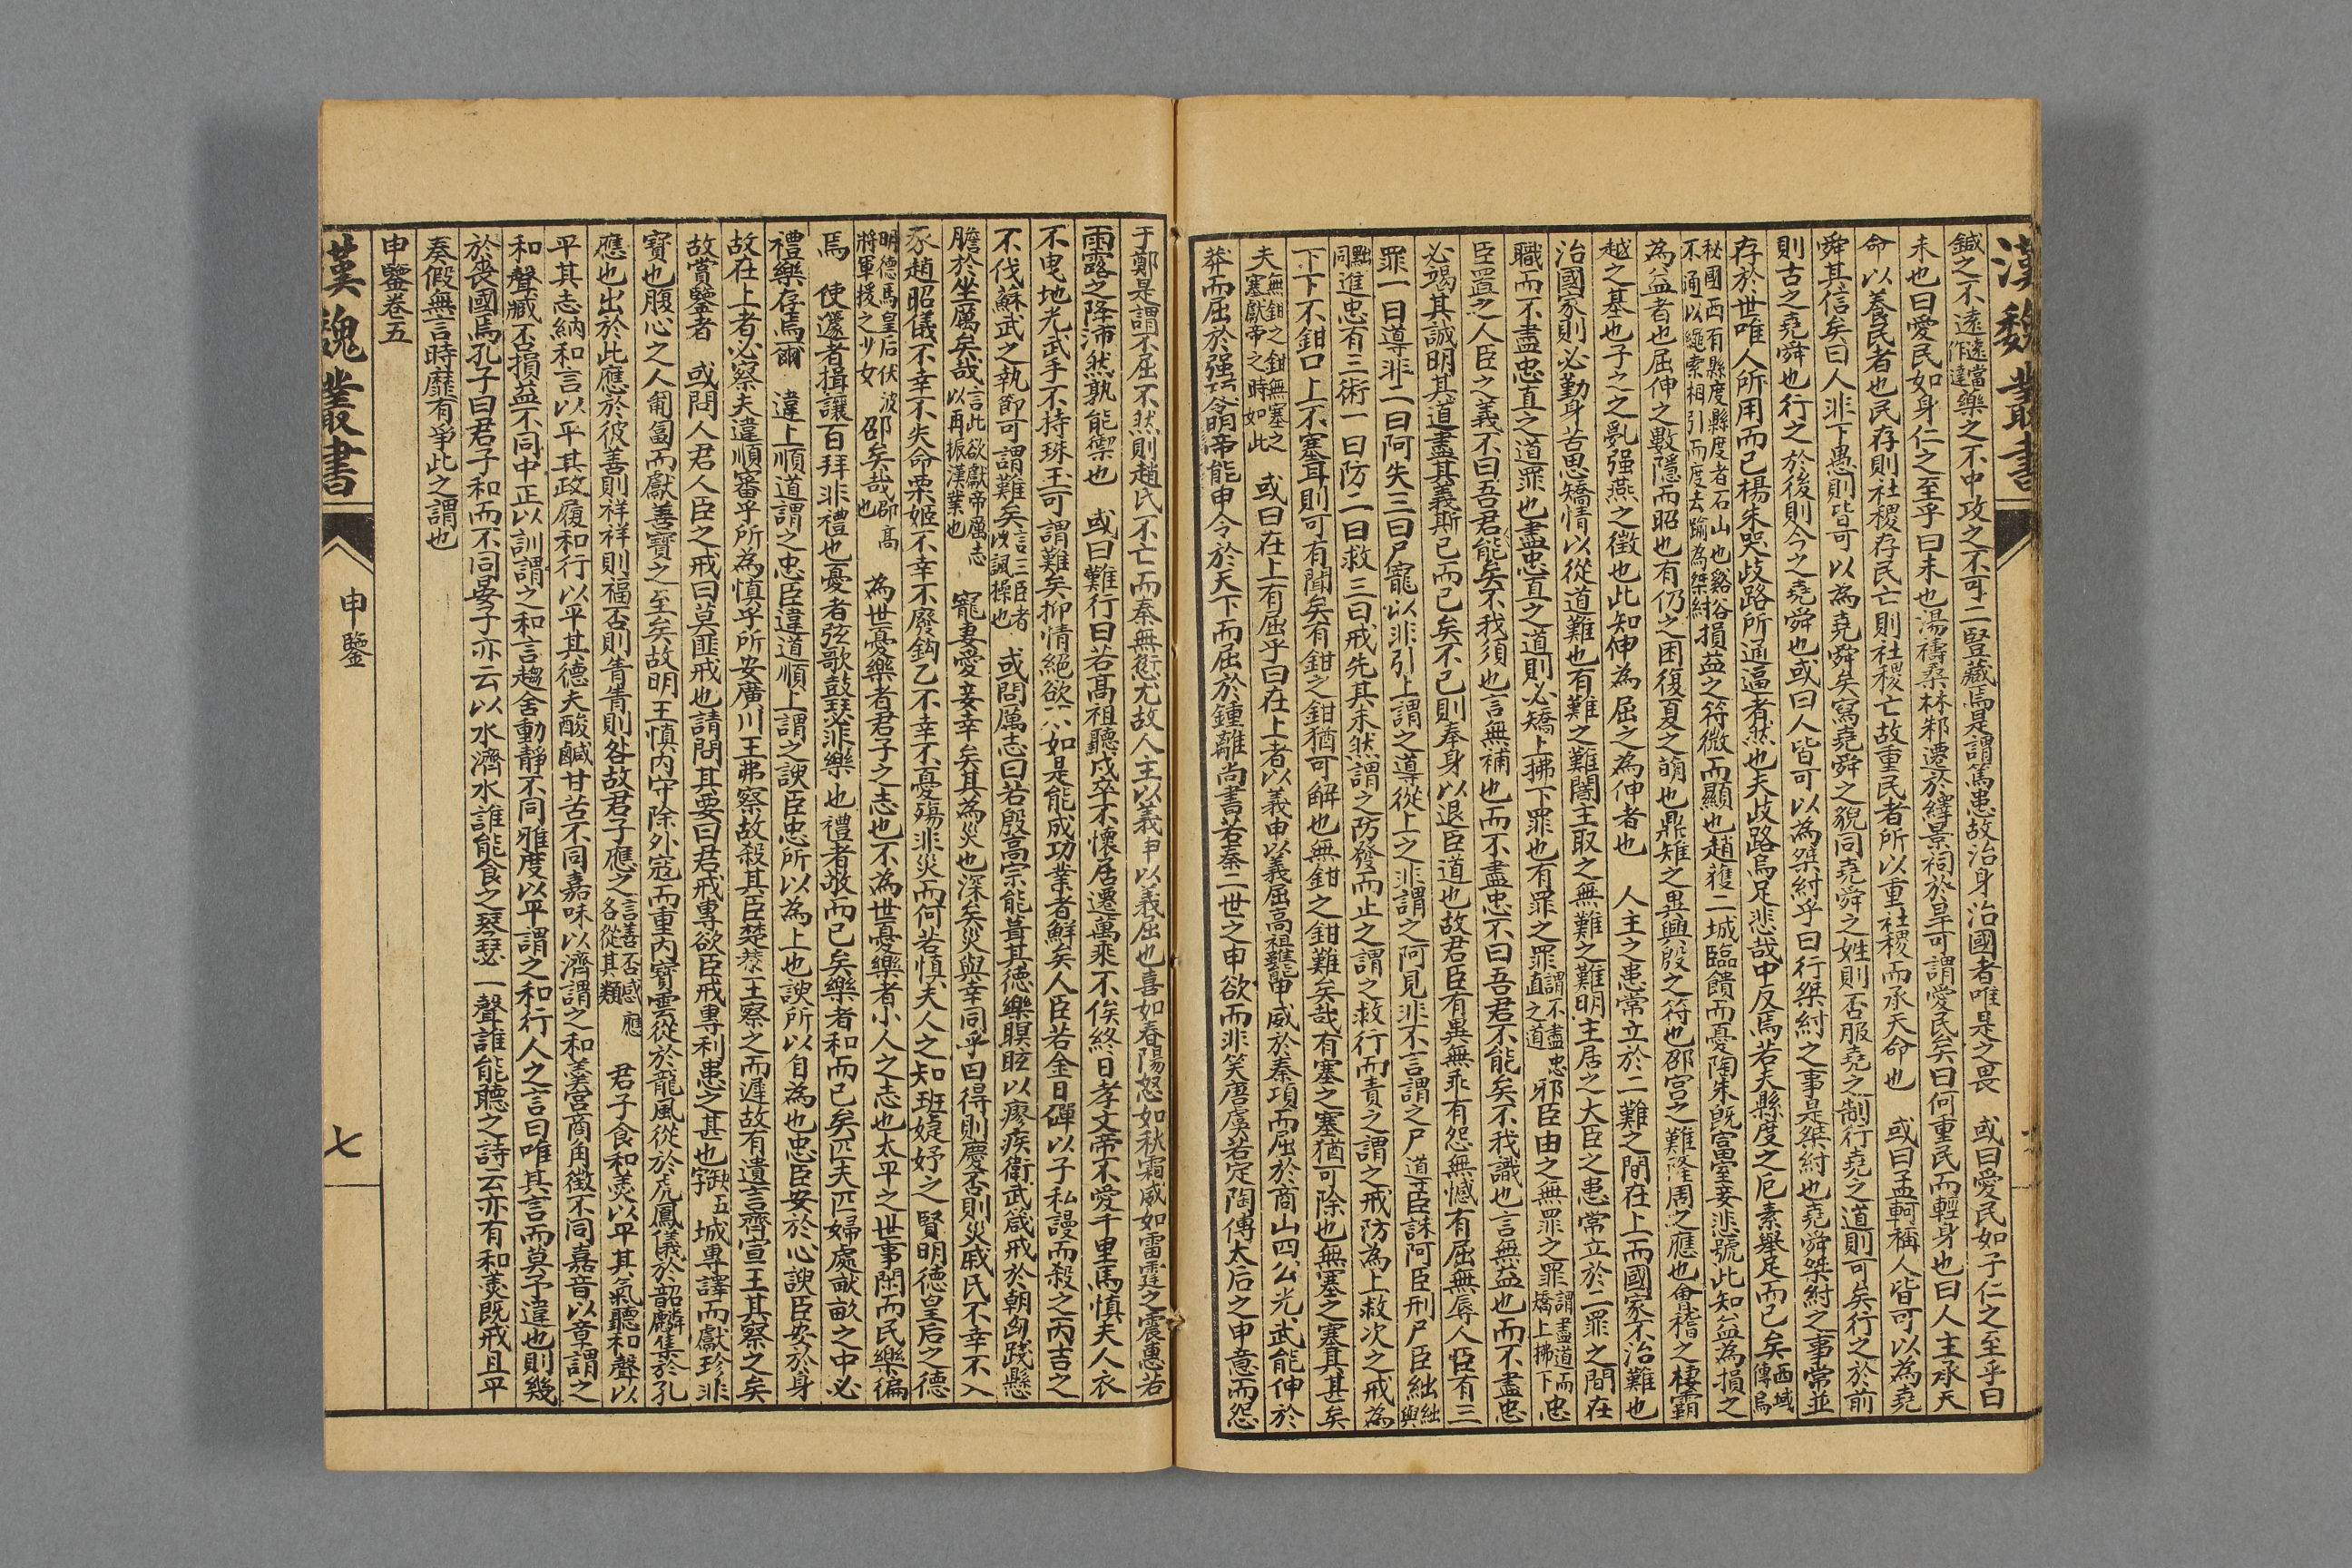 漢魏叢書
鍼之不遠遠當作達藥之不中攻之不可二豎藏焉是謂篤患故治身治國者唯是之畏　或曰愛民如子仁之至乎曰
未也曰愛民如身仁之至乎曰未也湯禱桑林邾遷於繹景祠於旱可謂愛民矣曰何重民而輕身也曰人主承天
命以養民者也民存則社稷存民亡則社稷亡故重民者所以重社稷而承天命也　或曰孟軻稱人皆可以為堯
舜其信矣曰人非下愚則皆可以為堯舜矣寫堯舜之貌同堯舜之姓則否服堯之制行堯之道則可矣行之於前
則古之堯舜也行之於後則今之堯舜也或曰人皆可以為桀紂乎曰行桀紂之事是桀紂也堯舜桀紂之事常並
存於世唯人所用而已楊朱哭歧路所通逼者然也夫歧路烏足悲哉中反焉若夫縣度之厄素舉足而已矣西域傳烏
秘國西有縣度縣度者石山也谿谷不通以繩索相引而度去踰為桀紂損益之符微而顯也趙獲二城臨饋而憂陶朱既富室妾悲號此知益為損之
為益者也屈伸之數隱而昭也有仍之困復夏之萌也鼎雉之異興殷之符也邵宮之難隆周之應也會稽之棲霸
越之基也子之之亂强燕之徵也此知伸為屈之為伸者也　人主之患常立於二難之間在上而國家不治難也
治國家則必勤身苦思矯情以從道難也有難之難闇主取之無難之難明主居之大臣之患常立於二罪之間在
職而不盡忠直之道罪也盡忠直之道則必矯上拂下罪也有罪之罪謂不盡忠直之道邪臣由之無罪之罪謂盡道而矯上拂下忠
臣置之人臣之義不曰吾君能矣不我須也言無補也而不盡忠不曰吾君不能矣不我識也言無益也而不盡忠
必竭其誠明其道盡其義斯已而已矣不已則奉身以退臣道也故君臣有異無乖有怨無憾有屈無辱人臣有三
罪一曰導非二曰阿失三曰尸寵以非引上謂之導從上之非謂之阿見非不言謂之尸道臣誅阿臣刑尸臣絀絀與
黜同進忠有三術一曰防二曰救三曰戒先其未然謂之防發而止之謂之救行而責之謂之戒防為上救次之戒為
下下不鉗口上不塞耳則可有聞矣有鉗之鉗猶可解也無鉗之鉗難矣哉有塞之塞猶可除也無塞之塞其甚矣
夫無鉗之鉗無塞之塞獻帝之時如此　或曰在上有屈乎曰在上者以義申以義屈高祖雖申威於秦項而屈於商山四公光武能伸於
莽而屈於强項令明帝能申令於天下而屈於鍾離尚書若秦二世之申欲而非笑唐虞若定陶傅太后之申意而怨
于鄭是謂不屈不然則趙氏不亡而秦無愆尤故人主以義申以義屈也喜如春陽怒如秋霜威如雷霆之震惠若
雨露之降沛然孰能禦也　或曰難行曰若高祖聽戍卒不懷居遷萬乘不俟終日孝文帝不愛千里馬慎夫人衣
不曳地光武手不持珠玉可謂難矣抑情絕欲不如是能成功業者鮮矣人臣若金日磾以子私謾而殺之丙吉之
不伐蘇武之執節可謂難矣言三臣者以諷操也　或問厲志曰若殷高宗能葺其德藥瞑眩以瘳疾衛武箴戒於朝勾踐懸
膽於坐厲矣哉言此欲獻帝厲志以再振漢業也　寵妻愛妾幸矣其為災也深矣災與幸同乎曰得則慶否則災戚氏不幸不入
豕趙昭儀不幸不失命栗姬不幸不廢鈎乙不幸不憂殤非災而何若慎夫人之知班婕妤之賢明德皇后之德
明德馬皇后伏波將軍援之少女邵矣哉邵高也　為世憂樂者君子之志也不為世憂樂者小人之志也太平之世事閑而民樂徧
焉　使遽者揖讓百拜非禮也憂者弦歌鼓瑟非樂也禮者敬而已矣樂者和而已矣匹夫匹婦處畎畝之中必
禮樂存焉爾　違上順道謂之忠臣違道順上謂之諛臣忠所以為上也諛所以自為也忠臣安於心諛臣安於身
故在上者必察夫違順審乎所為慎乎所安廣川王弗察故殺其臣楚恭王察之而遲故有遺言齊宣王其察之矣
故賞鑒者　或問人君人臣之戒曰莫匪戒也請問其要曰君戒專欲臣戒專利患之甚也缺五字城專譯而獻珍非
寶也腹心之人匍匐而獻善寶之至矣故明王慎內守除外寇而重內寶雲從於龍風從於虎鳳儀於韶麟集於孔
應也出於此應於彼善則祥祥則福否則眚眚則咎故君子應之言善否感應各從其類　君子食和羹以平其氣聽和聲以
平其志納和言以平其政履和行以平其德夫酸鹹甘苦不同嘉味以濟謂之和羹宮商角徵不同嘉音以章謂之
和聲臧否損益不同中正以訓謂之和言趨舍動靜不同雅度以平謂之和行人之言曰唯其言而莫予違也則幾
於喪國焉孔子曰君子和而不同晏子亦云以水濟水誰能食之琴瑟一聲誰能聽之詩云亦有和羹既戒且平
奏假無言時靡有爭此之謂也
申鑒卷五
漢魏叢書
申鑒
七